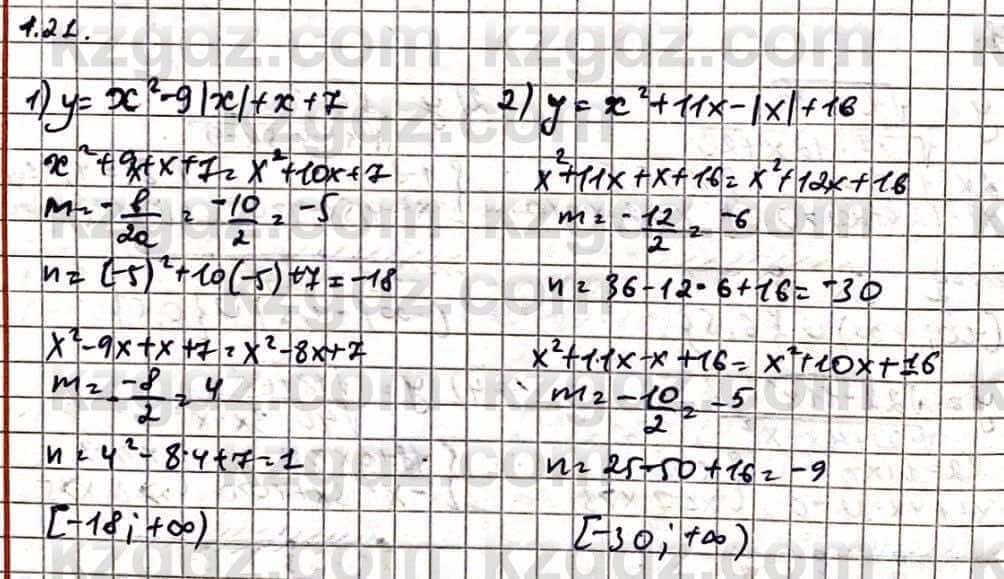 1.21.
1) y = x² - 9|x| + x + 7
x² + 9x + x + 7 = x² + 10x + 7
m = - b/2a = -10/2 = -5
n = (-5)² + 10(-5) + 7 = -18
x² - 9x + x + 7 = x² - 8x + 7
m = - -8/2 = 4
n = 4² - 8·4 + 7 = 1
[-18; +∞)
2) y = x² + 11x - |x| + 16
x² + 11x + x + 16 = x² + 12x + 16
m = - 12/2 = -6
n = 36 - 12·6 + 16 = -30
x² + 11x - x + 16 = x² + 10x + 16
m = - 10/2 = -5
n = 25 - 50 + 16 = -9
[-30; +∞)
kzgdz.com